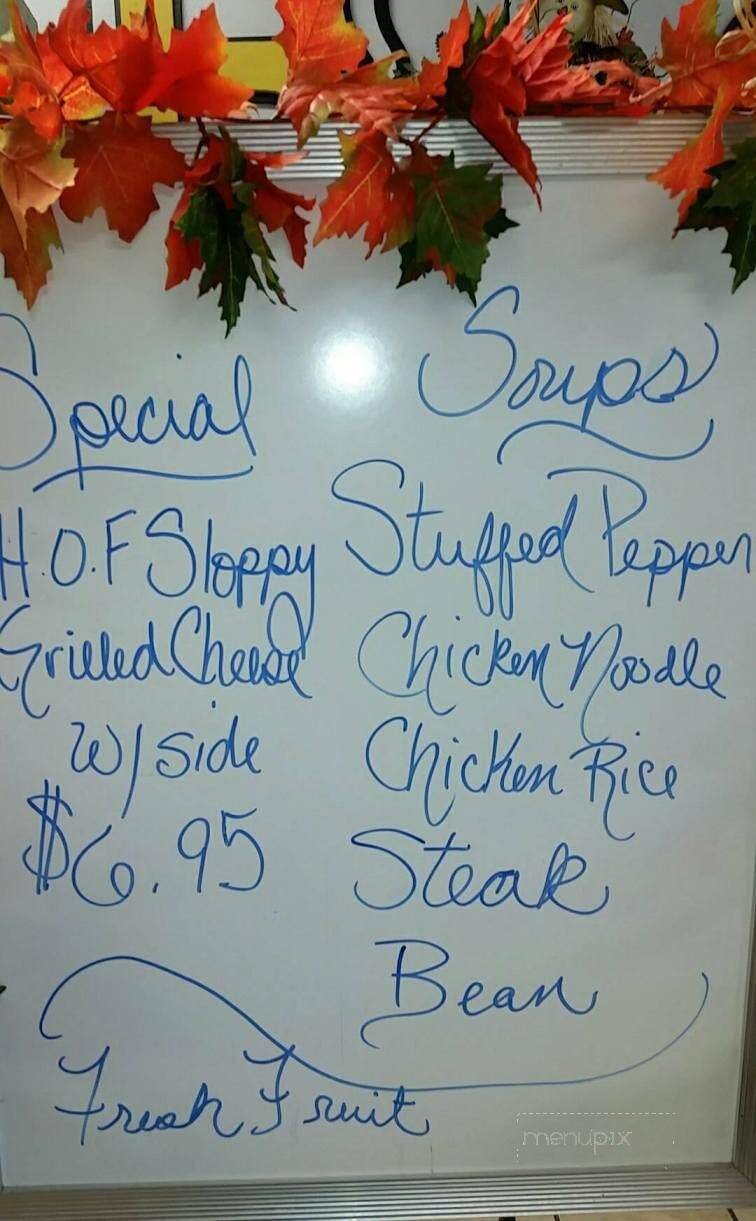 Special
H.O.F Sloppy
Grilled Cheese
w/ side
$6.95
Soups
Stuffed Pepper
Chicken Noodle
Chicken Rice
Steak
Bean
Fresh Fruit
menupix